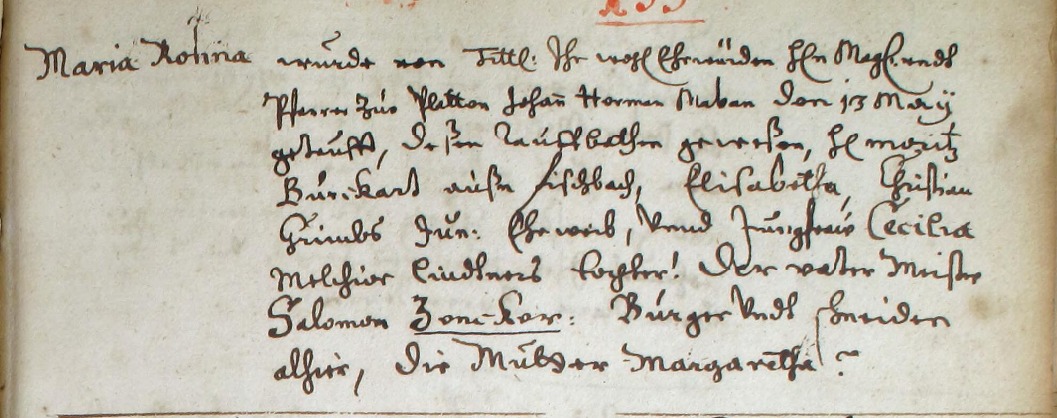 Maria Rosina wurde von Titl: Ihr wohl Ehrwürden H[er]n Mag[ist]: undt
Pfarrer zur Platten Johañ Herman Maban den 13 May
getaufft, deßen Tauffbathen geweßen, H[er] Moritz
Burckart außn Fischbach, Elisabetha, Christian
Grimbs Jun: Eheweib, Vnnd Jungfrau Cecilia
Melchior Lindtners tochter: Der vater Meister
Salomon Zencker: Burger Undt schneider
alhier, die Mutter Margaretha